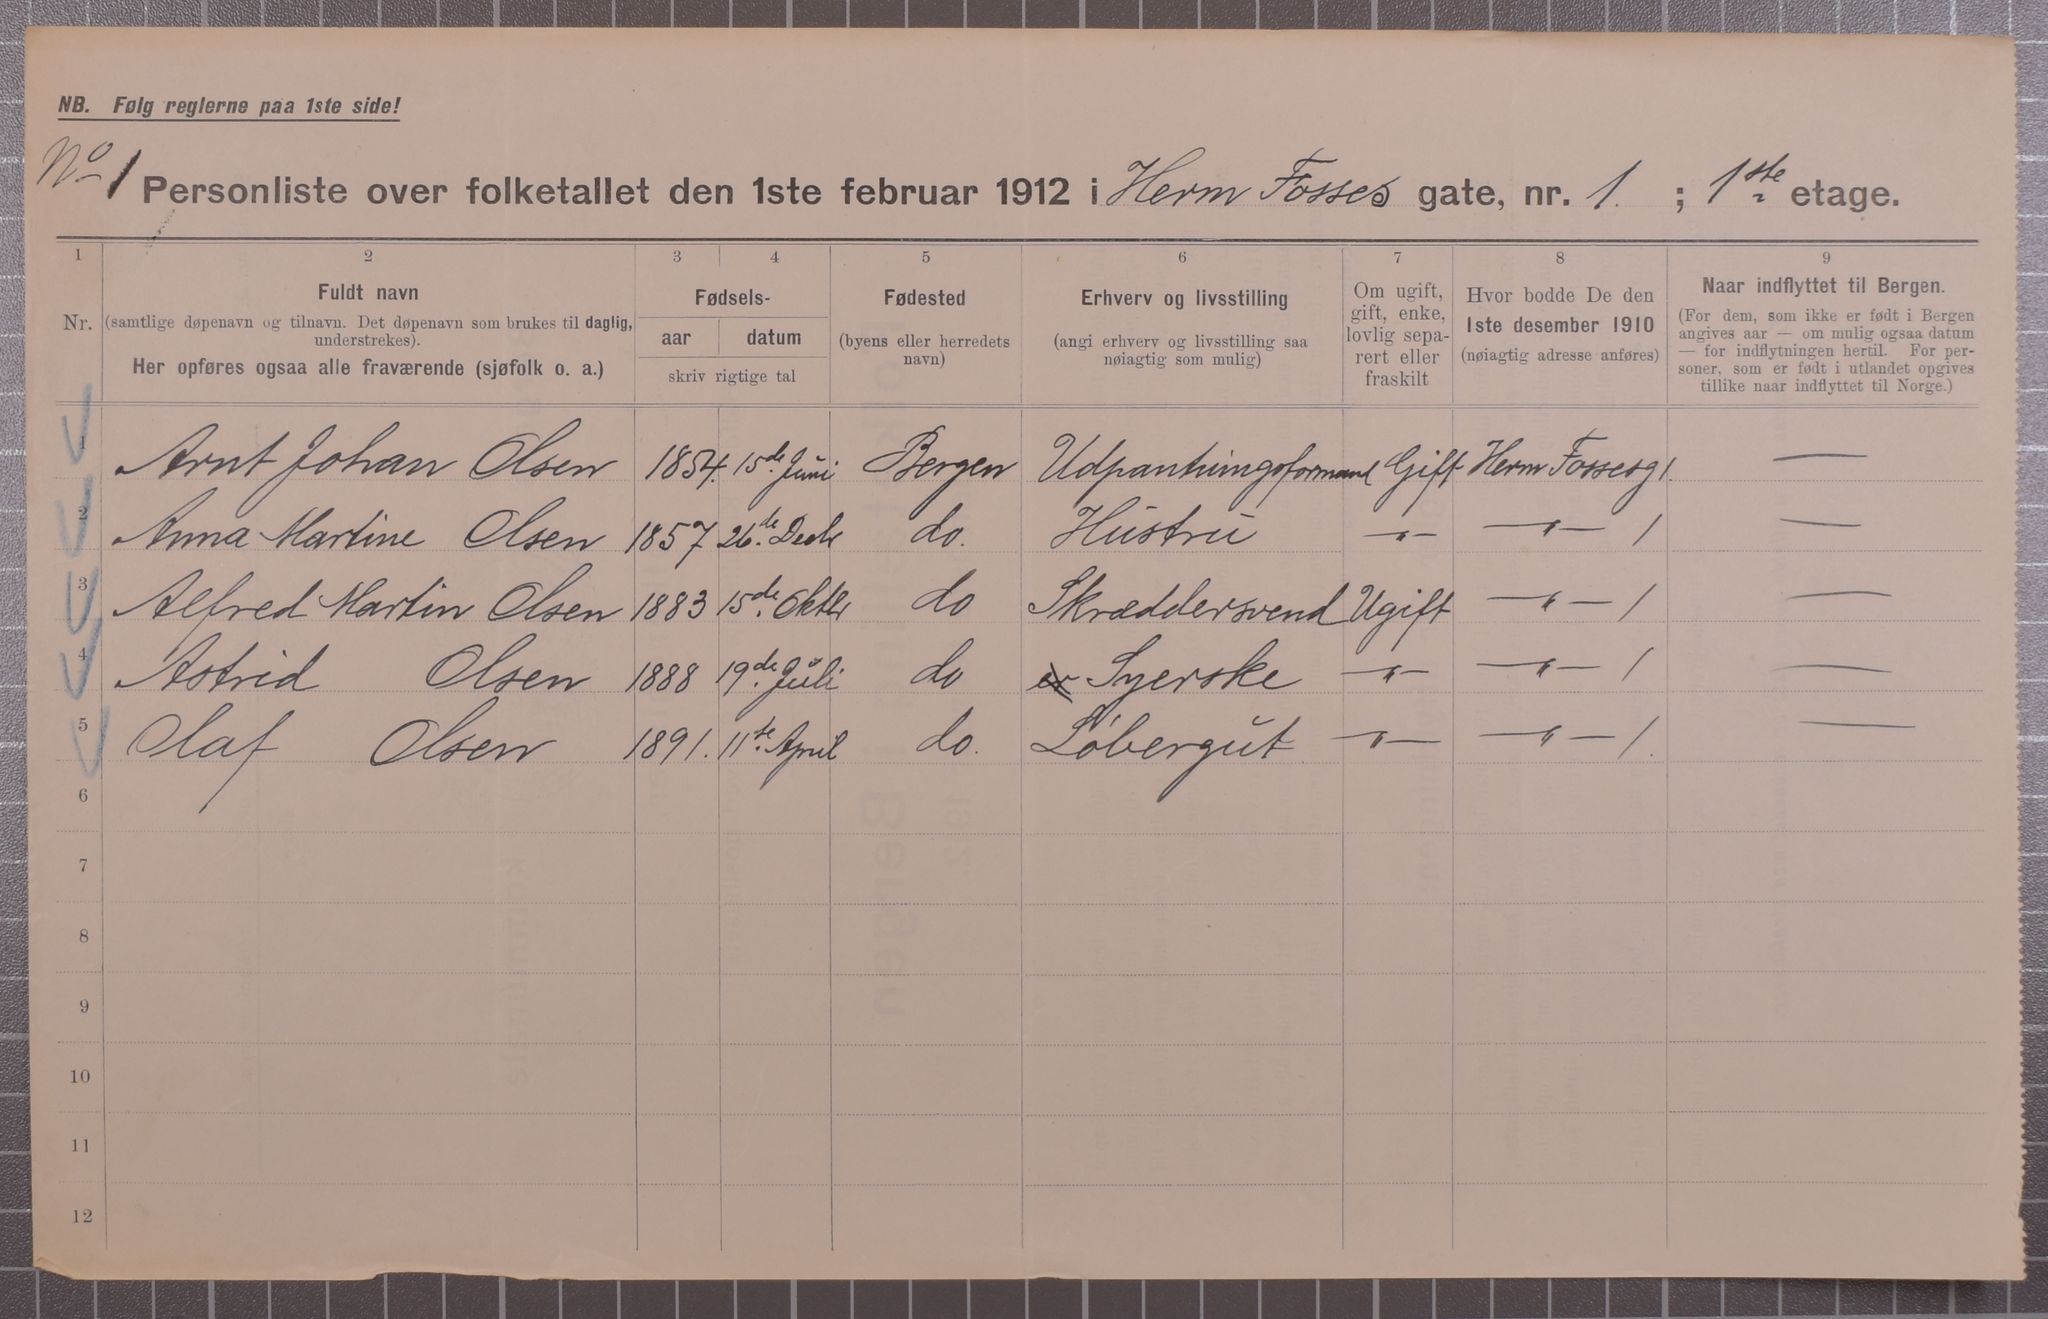 NB. Følg reglerne paa 1ste side!
No 1
Personliste over folketallet den 1ste februar 1912 i Herm Fosses gate, nr. 1. ; 1ste etage.
1 2 3 4 5 6 7 8 9
Nr.
Fuldt navn
(samtlige døpenavn og tilnavn. Det døpenavn som brukes til daglig,
understrekes).
Her opføres ogsaa alle fraværende (sjøfolk o. a.)
Fødsels-
aar datum
skriv rigtige tal
Fødested
(byens eller herredets
navn)
Erhverv og livsstilling
(angi erhverv og livsstilling saa
nøiagtig som mulig)
Om ugift,
gift, enke,
lovlig sepa-
rert eller
fraskilt
Hvor bodde De den
1ste desember 1910
(nøiagtig adresse anføres)
Naar indflyttet til Bergen.
(For dem, som ikke er født i Bergen
angives aar — om mulig ogsaa datum
— for indflytningen hertil. For per-
soner, som er født i utlandet opgives
tillike naar indflyttet til Norge.)
1 Arnt Johan Olsen 1854. 15de Juni Bergen Udpantningsformand Gift Herm Fossesg 1. —
2 Anna Martine Olsen 1857 26de Decbr do. Hustru —"— —"— 1 —
3 Alfred Martin Olsen 1883 15de Oktbr do Skræddersvend Ugift —"— 1 —
4 Astrid Olsen 1888 19de Juli do er Syerske —"— —"— 1 —
5 Olaf Olsen 1891. 11te April do. Løbergut —"— —"— 1. —
6
7
8
9
10
11
12